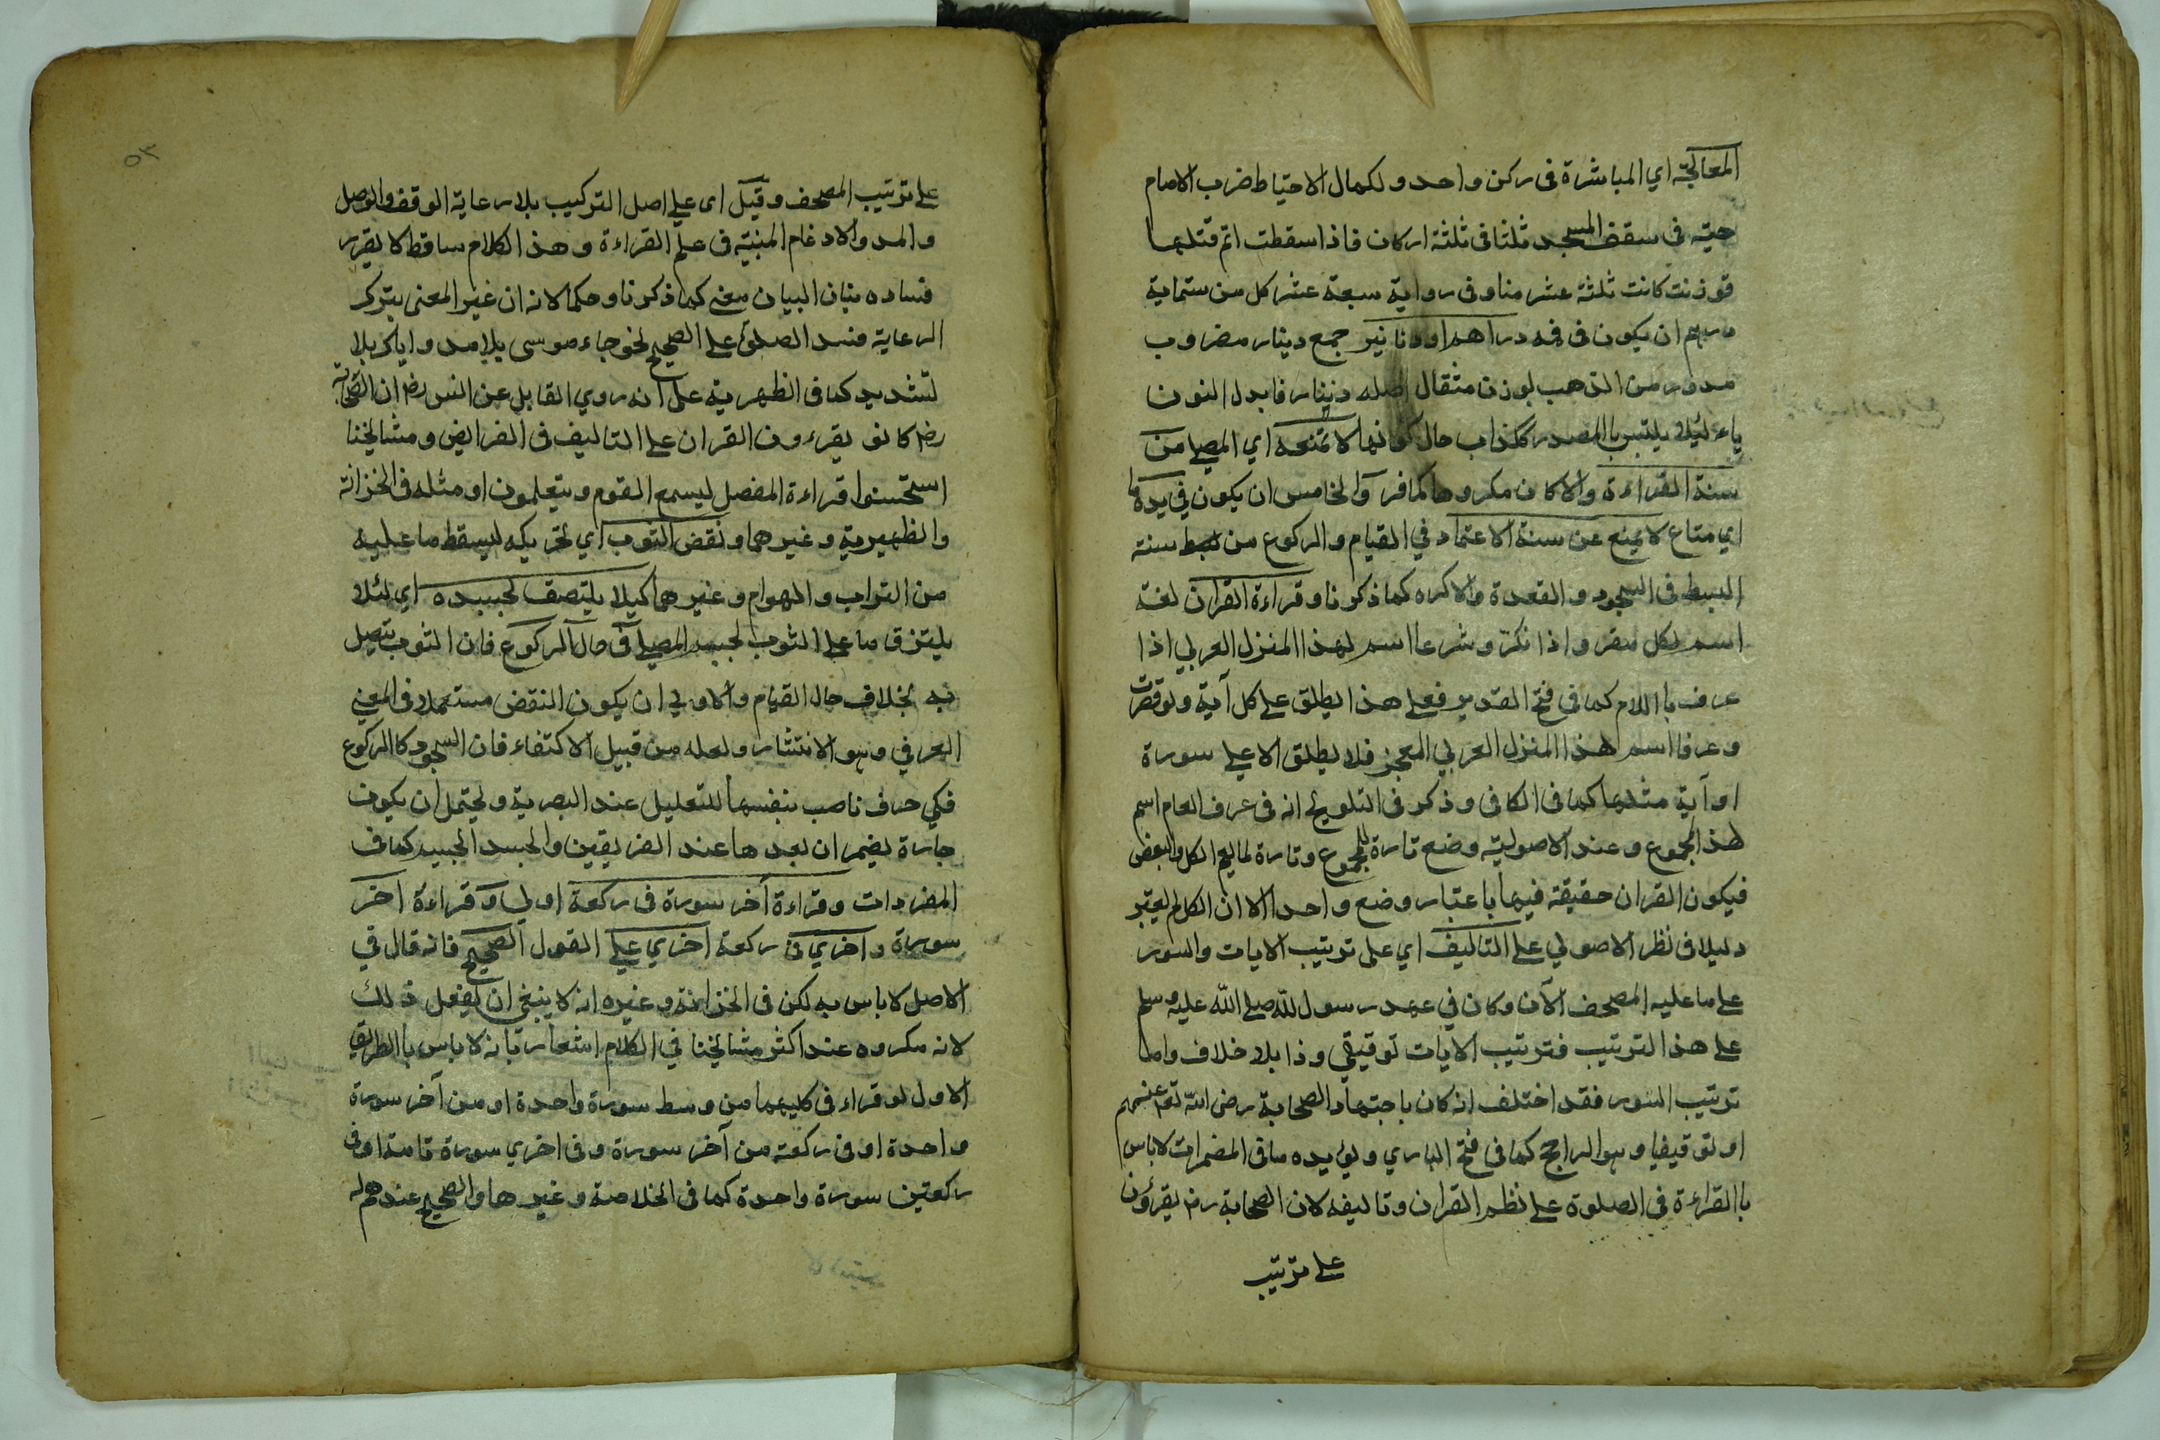 المعالجة اي المباشرة فى ركن واحد ولكمال الاحتياط ضرب الامام
حية فى سقف المسجد ثلثا فى ثلثة اركان فاذا سقطت اتم قتلها
فوزنت كانت ثلثة عشر منا وفى رواية سبعة عشر كل من ستماية
درهم ان يكون فى فمه دراهم او دنانير جمع دينار مضروب
مدور من الذهب بوزن مثقال اصله دننار فابدل النون
ياء لئلا يلتبس بالمصدر ككذاب حال كونها لا تمنعه اي المصلي من
سنة القراءة والا كان مكروها كما مر والخامس ان يكون في يده ما
اي متاع لا يمنع عن سنة الاعتماد في القيام والركوع من سنة
البسط فى السجود والقعدة والا كره كما ذكرنا وقراءة القران لغة
اسم لكل مقرو اذا نكر وشرعا اسم لهذا المنزل العربي اذا
عرف باللام كما فى فتح القدير فعلى هذا يطلق على كل آية ولو قصرت
وعرفا اسم هذا المنزل العربي المعجز فلا يطلق الا على سورة
او آية مثلها كما فى الكافى وذكر فى التلويح انه فى عرف العام اسم
لهذا المجموع وعند الاصولية وضع تارة للمجموع وتارة لما يعم الكل والبعض
فيكون القران حقيقة فيهما باعتبار وضع واحد الا ان الكل لم يعتبر
دليلا فى نظر الاصولي على التاليف اي على ترتيب الايات والسور
على ما عليه المصحف الآن وكان في عهد رسول الله صلى الله عليه وسلم
على هذا الترتيب فترتيب الايات توقيفي وذا بلا خلاف واما
ترتيب السور فقد اختلف انه كان باجتهاد الصحابة رضى الله تع عنهم
او توقيفيا وهو الراجح كما فى فتح البارى ويؤيده ما فى المضمرات لا باس
بالقراءة في الصلوة على نظم القران وتاليفه لان الصحابة رض يقرؤن
على ترتيب
٥٣
على ترتيب المصحف وقيل اى على اصل التركيب بلا رعاية الوقف والوصل
والمد والادغام المبنية فى علم القراءة وهذا الكلام ساقط لا يقرر
فساده بنان البيان معنى كما ذكرنا وحكما لانه ان غير المعنى بترك
الرعاية فسد الصلوة على الصحيح نحو جاء موسى بلا مد واياك بلا
تشديد كما فى الظهرية على انه روي القابل عن انس رض ان الصحابة
رض كانو يقرءون القران على التاليف فى الفرايض ومشايخنا
استحسنوا قراءة المفصل ليسمع القوم ويتعلمون او مثله فى الخزانة
والظهيرية وغيرهما ونقض الثوب اي تحريكه ليسقط ما عليه
من التراب والهوام وغيرهما كيلا يلتصق بجسده اي لئلا
يلتزق ما على الثوب بجسد المصلي فى حال الركوع فان الثوب يتصل
به بخلاف حال القيام والاولى ان يكون النقض مستعملا فى المعنى
العرفي وهو الانتشار ولعله من قبيل الاكتفاء فان السجود كالركوع
فكي حرف ناصب بنفسها للتعليل عند البصرية ويحتمل ان يكون
جارة يضمر ان بعدها عند الفريقين والجسد الجسم كما فى
المفردات وقراءة آخر سورة فى ركعة اولى وقراءة آخر
سورة اخرى فى ركعة اخرى على القول الصحيح فانه قال في
الاصل لا باس به لكن فى الخزانة وغيره انه لا ينبغى ان يفعل ذلك
لانه مكروه عند اكثر مشايخنا في الكلام اشعار بانه لا باس بالطريق
الاول لو قراء فى كليهما من وسط سورة واحدة او من آخر سورة
واحدة او فى ركعة من آخر سورة وفى اخرى سورة تامة او فى
ركعتين سورة واحدة كما فى الخلاصة وغيرها والصحيح عندهم انه